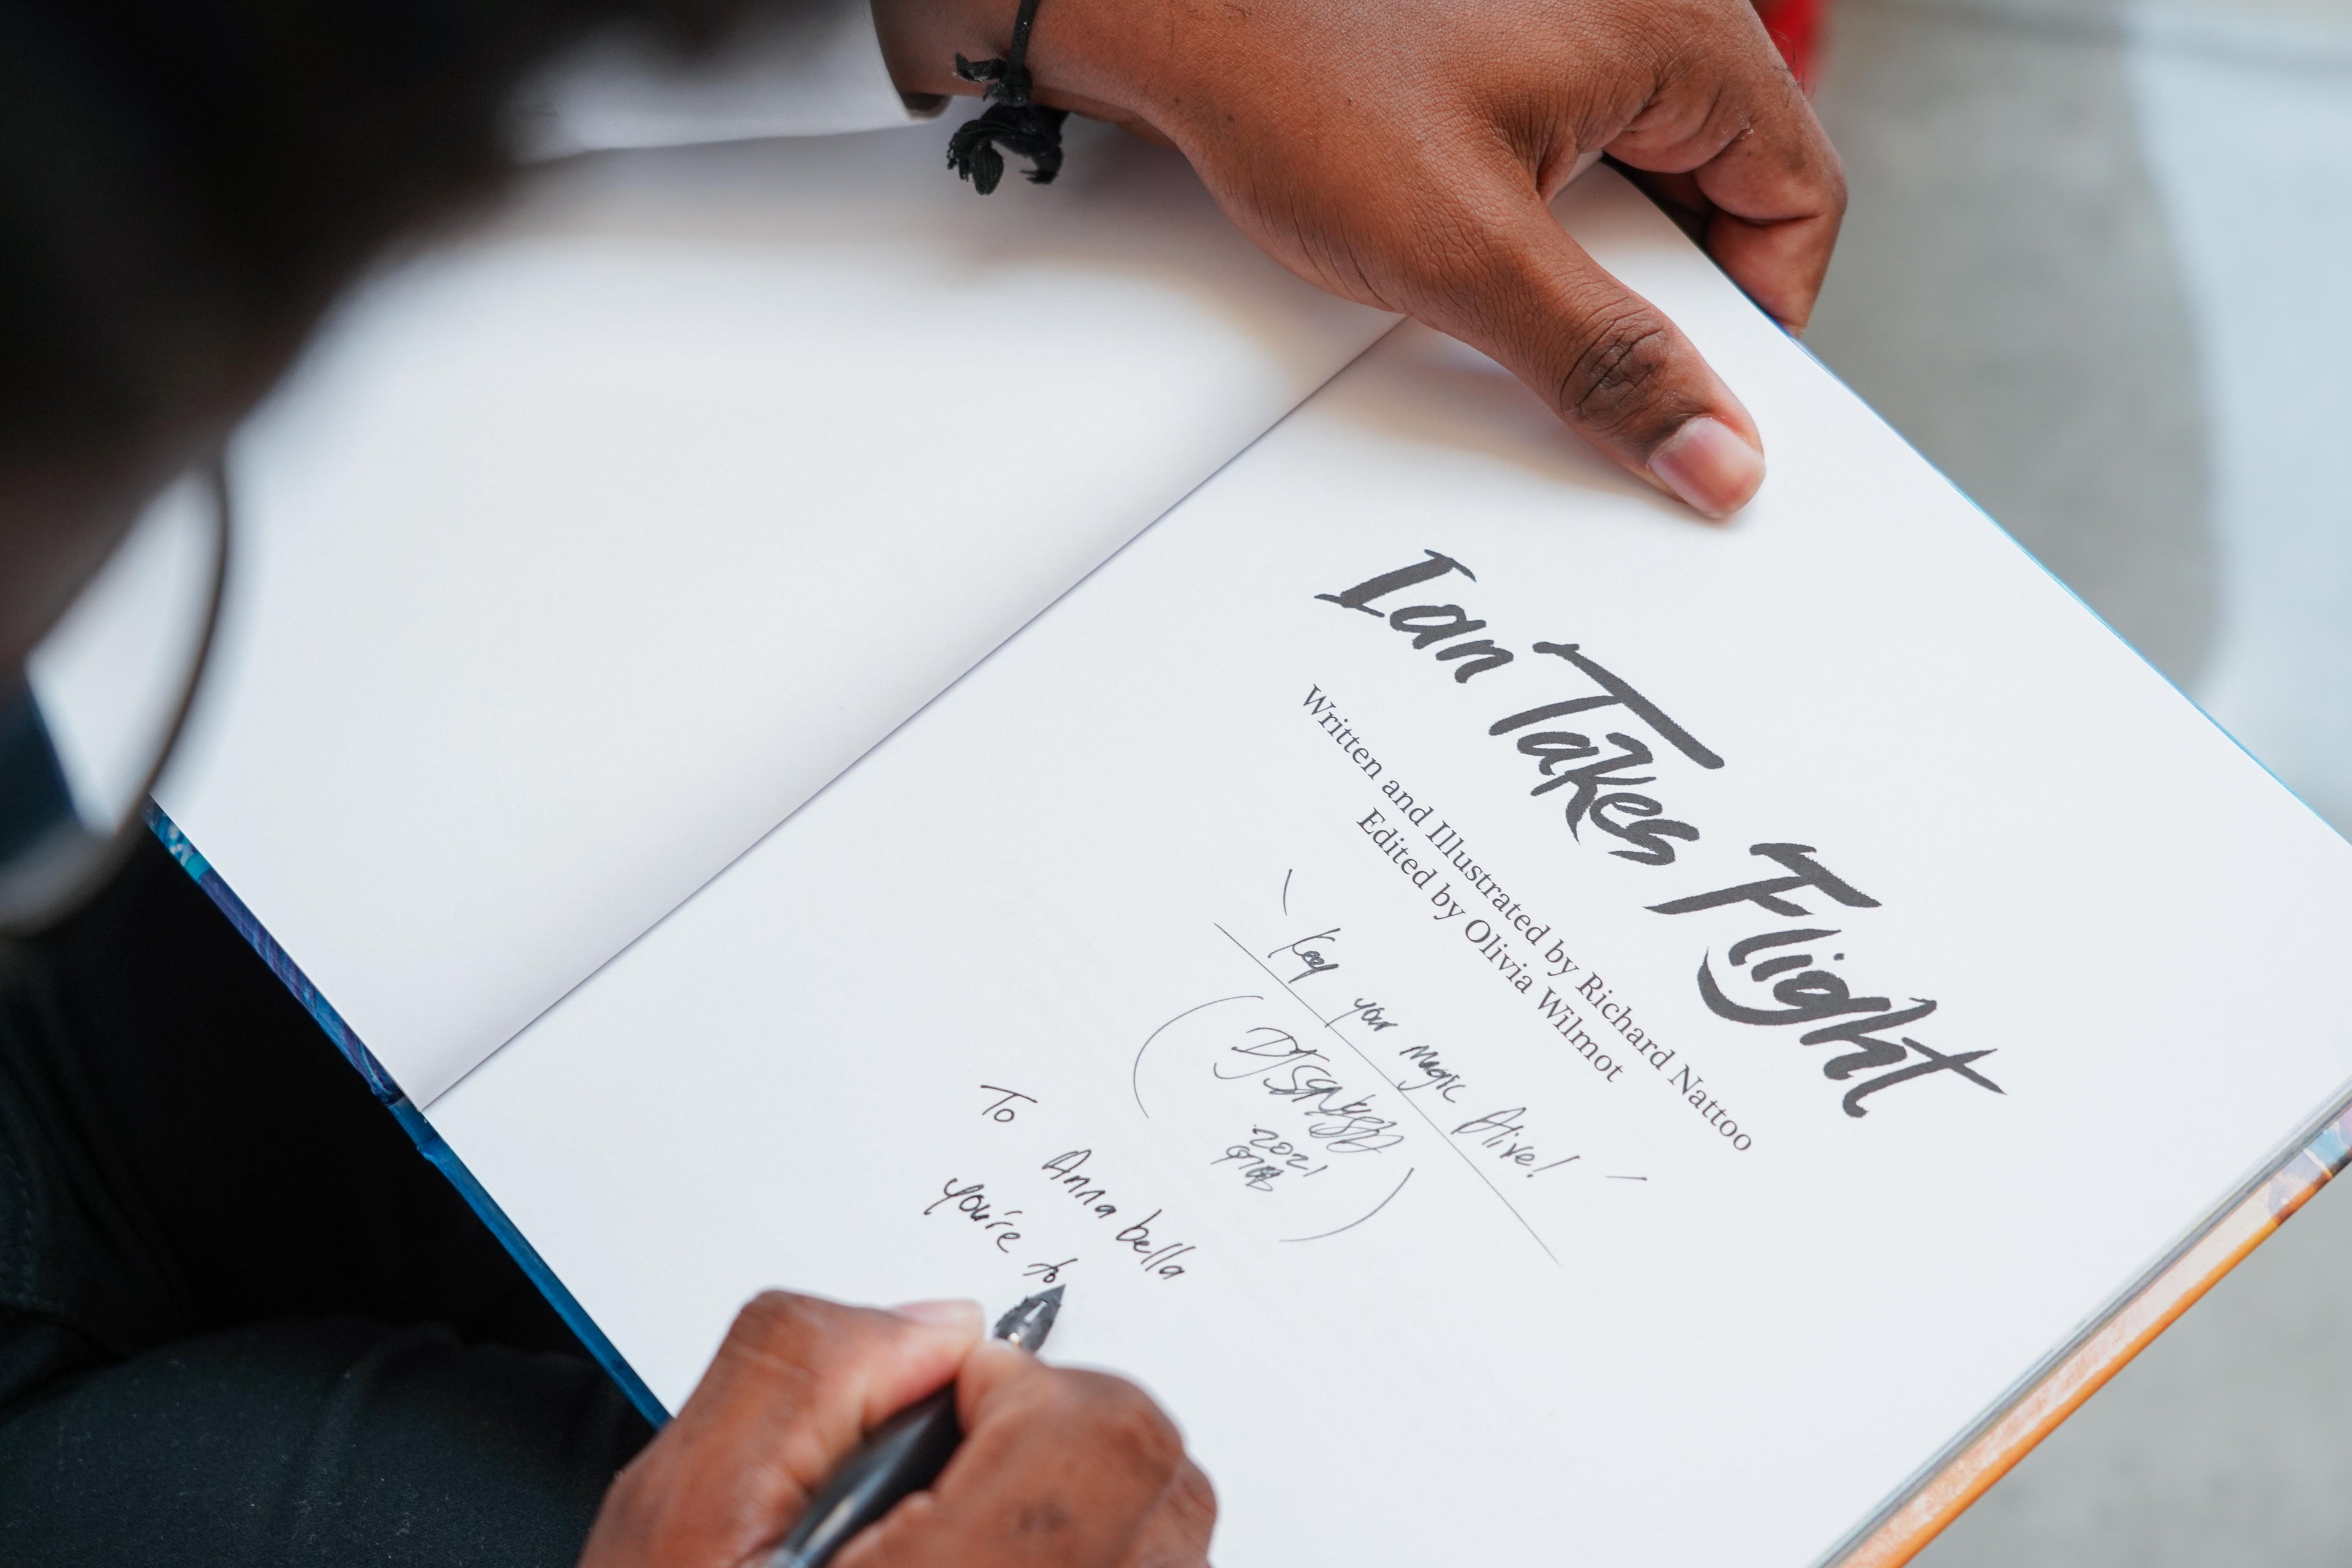 Ian Takes Flight
Written and Illustrated by Richard Nattoo
Edited by Olivia Wilmot
Keep your magic Alive!
2021
To Anna bella
you're to